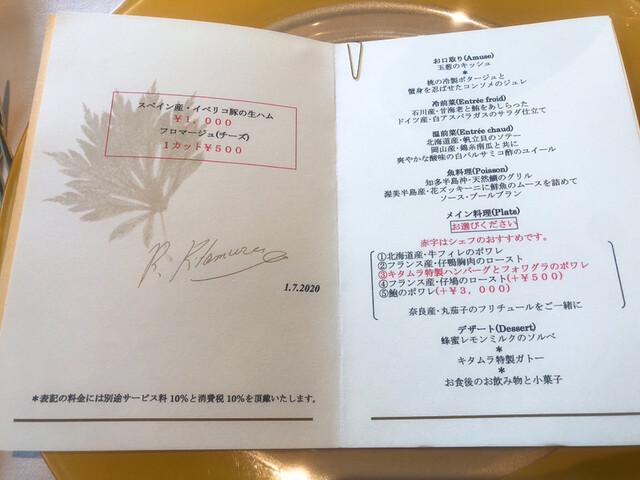 スペイン産・イベリコ豚の生ハム
￥１，０００
フロマージュ(チーズ)
１カット￥５００
R. Kitamura
1.7.2020
＊表記の料金には別途サービス料 10％と消費税 10％を頂戴いたします。
お口取り(Amuse)
玉葱のキッシュ
＊
桃の冷製ポタージュと
蟹身を忍ばせたコンソメのジュレ
冷前菜(Entrée froid)
石川産・甘海老と鮪をあしらった
ドイツ産・白アスパラガスのサラダ仕立て
温前菜(Entrée chaud)
北海道産・帆立貝のソテー
岡山産・錦糸南瓜と共に
爽やかな酸味の白バルサミコ酢のユイール
魚料理(Poisson)
知多半島沖・天然鯛のグリル
渥美半島産・花ズッキーニに鮮魚のムースを詰めて
ソース・ブールブラン
メイン料理(Plats)
お選びください
赤字はシェフのおすすめです。
①北海道産・牛フィレのポワレ
②フランス産・仔鴨胸肉のロースト
③キタムラ特製ハンバーグとフォワグラのポワレ
④フランス産・仔鳩のロースト(＋￥５００)
⑤鮑のポワレ(＋￥３，０００)
奈良産・丸茄子のフリチュールをご一緒に
デザート(Dessert)
蜂蜜レモンミルクのソルベ
＊
キタムラ特製ガトー
＊
お食後のお飲み物と小菓子